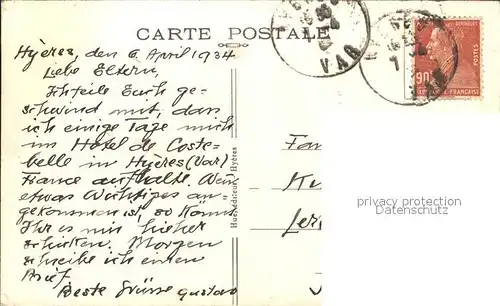 CARTE POSTALE
Hyères, den 6. April 1934
Liebe Eltern,
Ich teile Euch ge-
schwind mit, dass
ich einige Tage mich
im Hotel de Coste-
belle in Hyères (Var)
France aufhalte. Wenn
etwas Wichtiges an-
gekommen ist, so könnt
Ihr es mir hieher
schicken. Morgen
schreibe ich einen
Brief.
Beste Grüsse Gustav
VAR
90
POSTES
FRANÇAISE
Hyères
privacy protection
Datenschutz